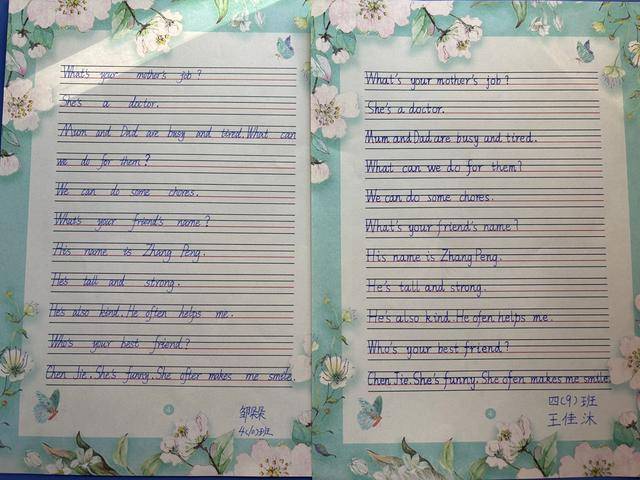 What's your mother's job?
She's a doctor.
Mum and Dad are busy and tired. What can
we do for them?
We can do some chores.
What's your friend's name?
His name is Zhang Peng.
He's tall and strong.
He's also kind. He often helps me.
Who's your best friend?
Chen Jie. She's funny. She ofter makes me smile.
4
4(10)班
What's your mother's job?
She's a doctor.
Mum and Dad are busy and tired.
What can we do for them?
We can do some chores.
What's your friend's name?
His name is Zhang Peng.
He's tall and strong.
He's also kind. He ofen helps me.
Who's your best friend?
Chen Jie. She's funny. She ofen makes me smile.
4
四(9)班
王佳沐